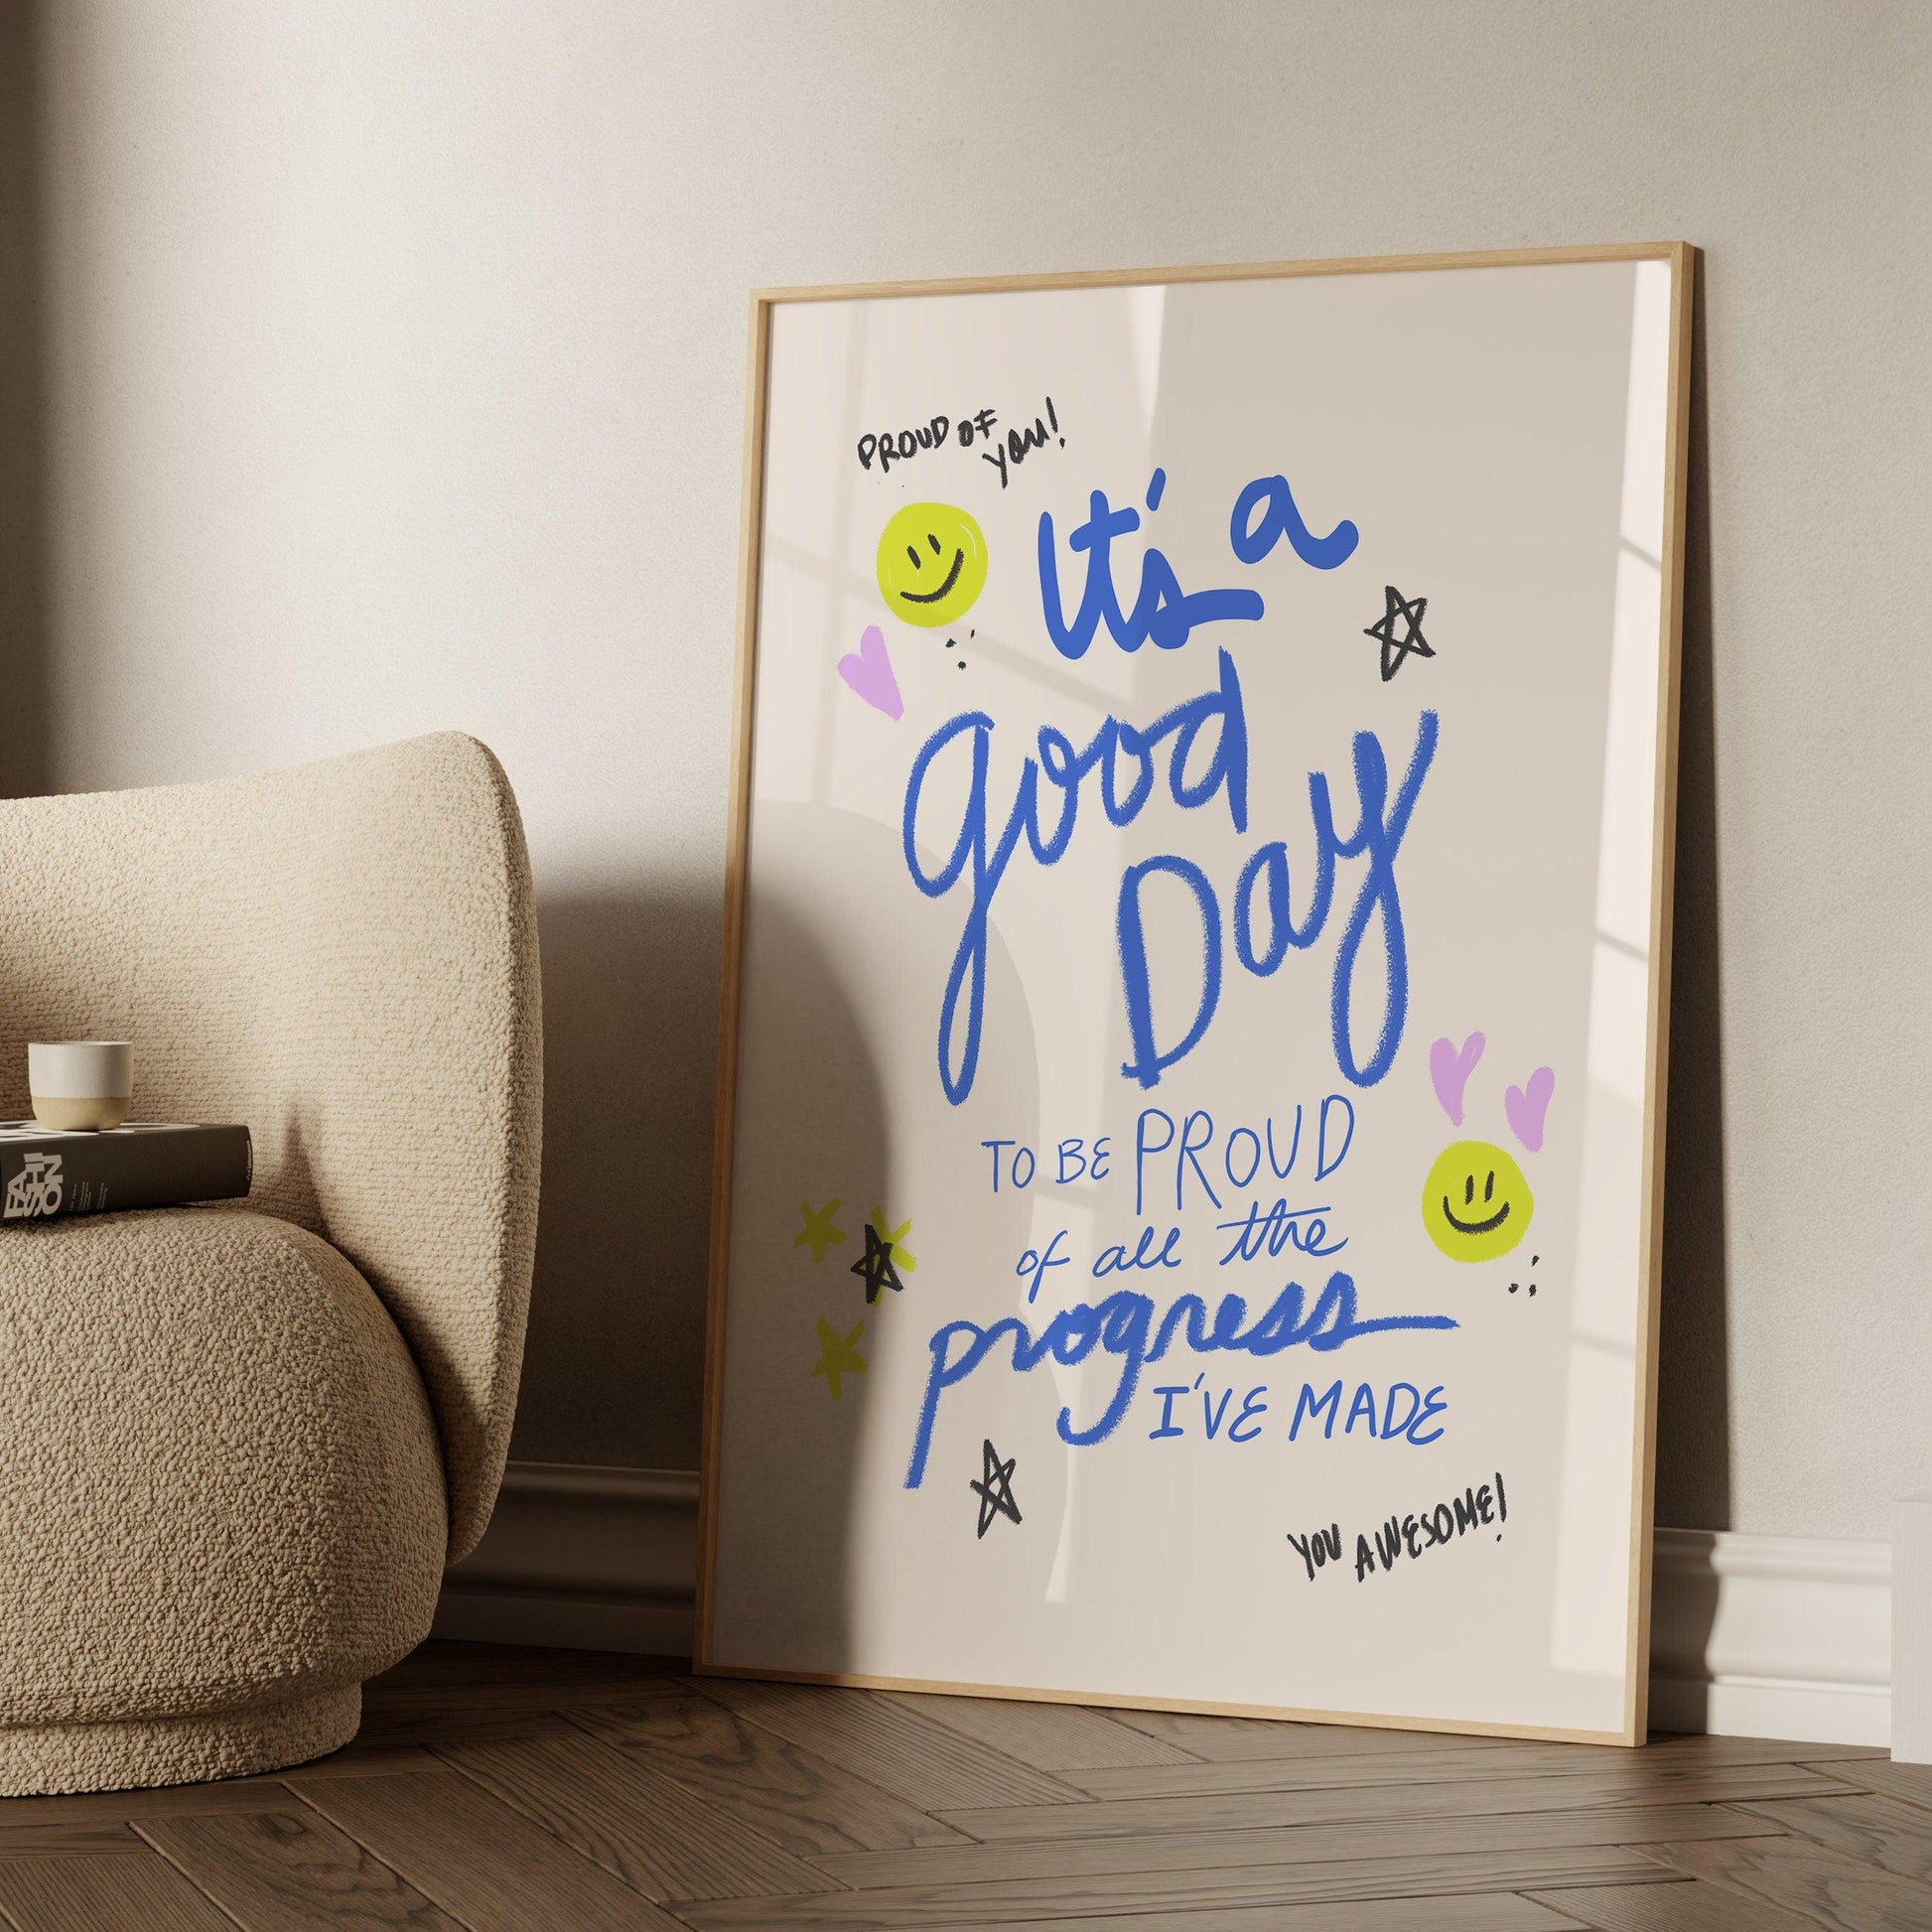 PROUD OF
you!
It's a
good
Day
TO BE PROUD
of all the
progress
I'VE MADE
YOU AWESOME!
FA
SHI
ON